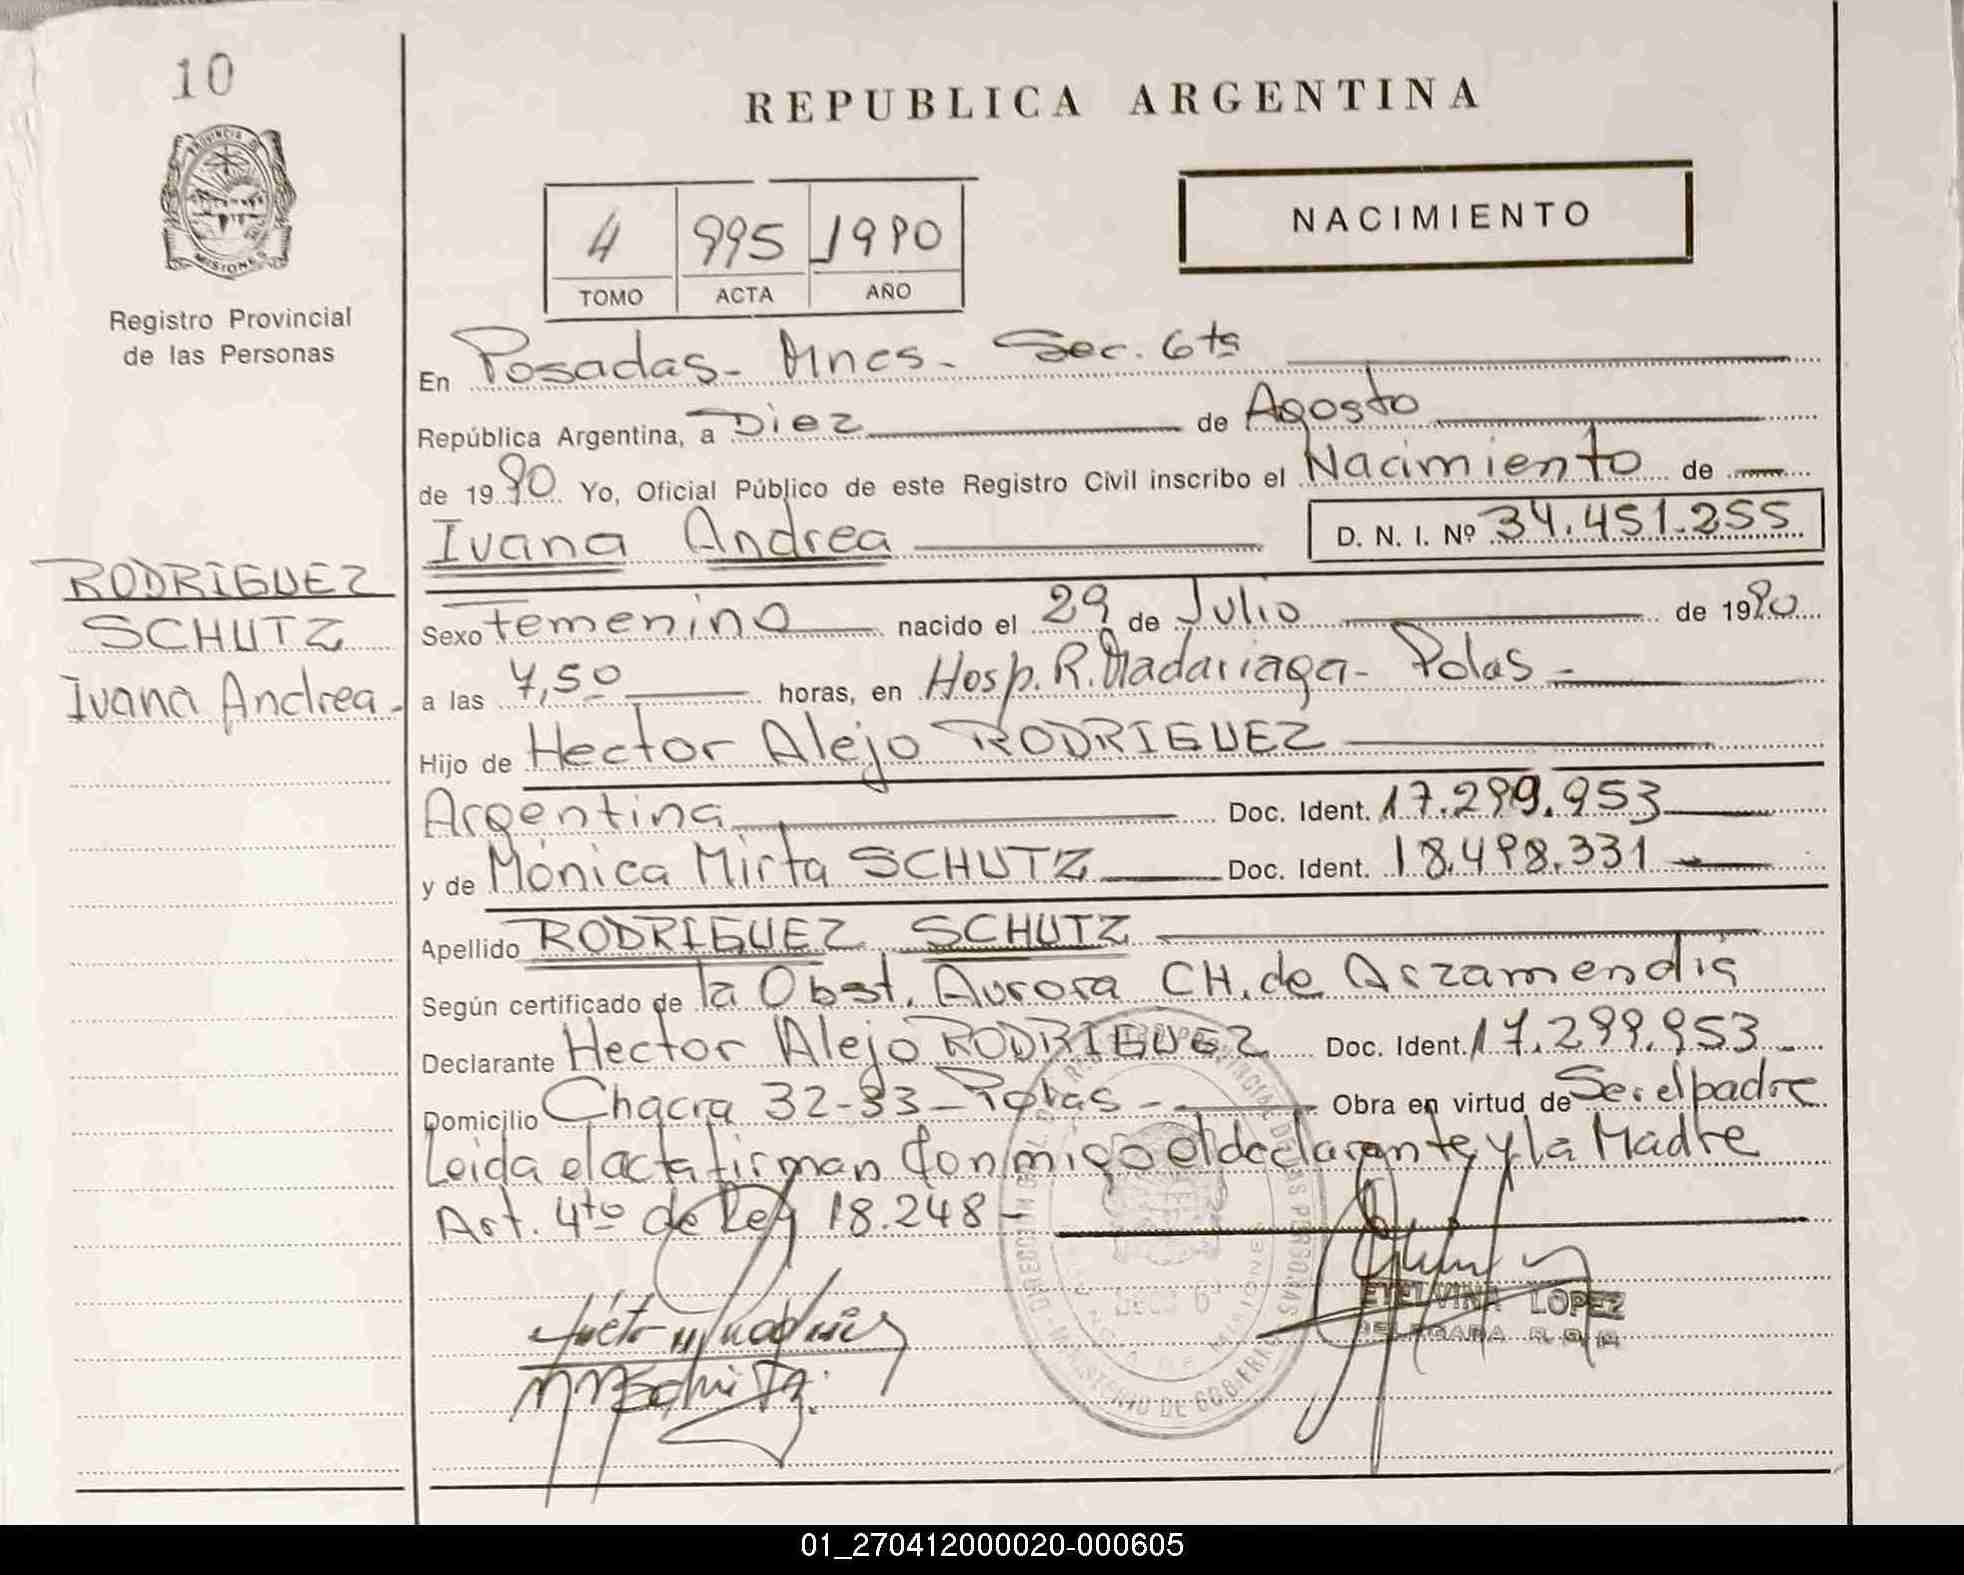 10
REPUBLICA ARGENTINA
PROVINCIA DE
MISIONES
Registro Provincial
de las Personas
4 995 1990
TOMO ACTA AÑO
NACIMIENTO
En Posadas - Mnes - Sec. 6ta
República Argentina, a Diez de Agosto
de 1990 Yo, Oficial Público de este Registro Civil inscribo el Nacimiento de
Ivana Andrea D. N. I. Nº 34.451.255
RODRIGUEZ
SCHUTZ
Ivana Andrea -
Sexo Femenino nacido el 29 de Julio de 1990
a las 7,50 horas, en Hosp. R. Madariaga - Pdas -
Hijo de Hector Alejo RODRIGUEZ
Argentina Doc. Ident. 17.299.953
y de Mónica Mirta SCHUTZ Doc. Ident. 18.498.331
Apellido RODRIGUEZ SCHUTZ
Según certificado de la Obst. Aurora CH. de Arzamendia
Declarante Hector Alejo RODRIGUEZ Doc. Ident. 17.299.953
Domicilio Chacra 32-33 - Pdas - Obra en virtud de Ser el padre
Leida el acta firman conmigo el declarante y la Madre
Art. 4to de Ley 18.248 -
ETELVINA LOPEZ
DELEGADA R. P. P.
01_270412000020-000605